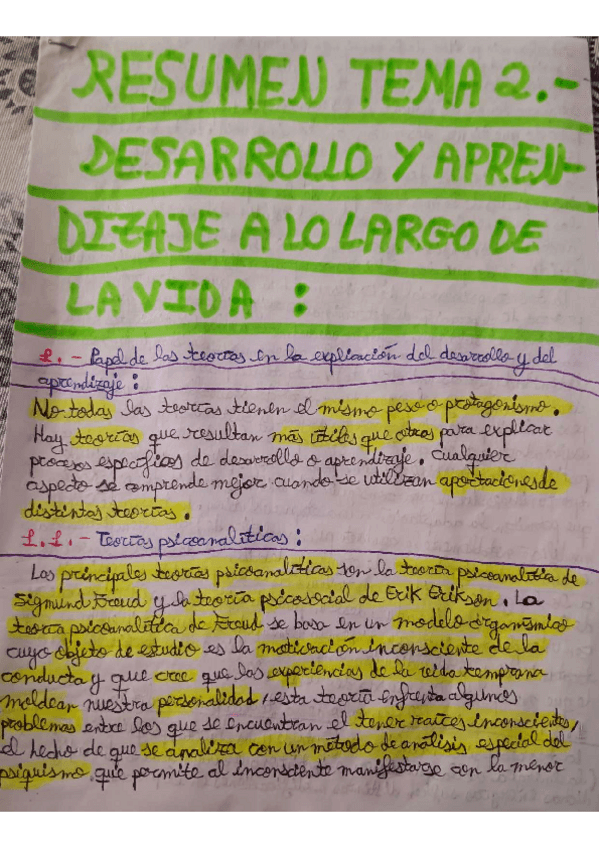 RESUMEN TEMA 2.-
DESARROLLO Y APREN-
DIZAJE A LO LARGO DE
LA VIDA :
1. - Papel de las teorías en la explicación del desarrollo y del
aprendizaje :
No todas las teorías tienen el mismo peso o protagonismo.
Hay teorías que resultan más útiles que otras para explicar
procesos específicos de desarrollo o aprendizaje. Cualquier
aspecto se comprende mejor cuando se utilizan aportaciones de
distintas teorías.
1.1. - Teorías psicoanalíticas :
Las principales teorías psicoanalíticas son la teoría psicoanalítica de
Sigmund Freud y la teoría psicosocial de Erik Erikson. La
teoría psicoanalítica de Freud se basa en un modelo organísmico
cuyo objeto de estudio es la motivación inconsciente de la
conducta y que cree que las experiencias de la vida temprana
moldean nuestra personalidad, esta teoría enfrenta algunos
problemas entre los que se encuentran el tener raíces inconscientes,
el hecho de que se analiza con un método de análisis especial del
psiquismo que permite al inconsciente manifestarse con la menor